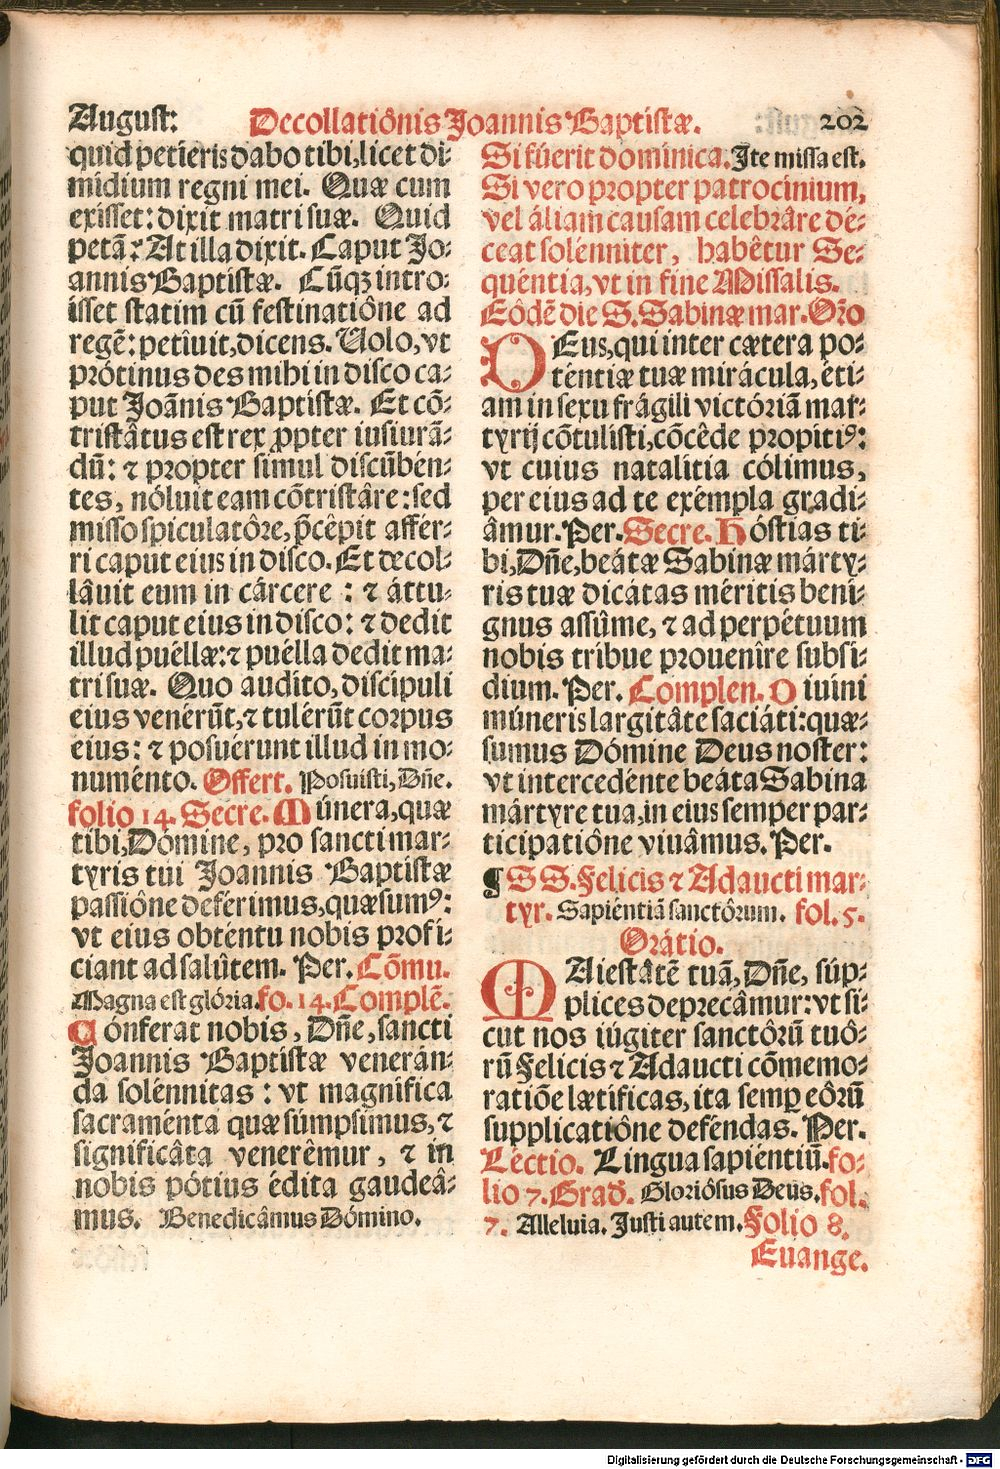 August: Decollatiônis Joannis Baptistæ. 202
quid petíeris dabo tibi, licet di-
midium regni mei. Quæ cum
exisset: dixit matri suæ. Quid
petã? At illa dixit. Caput Jo-
annis Baptistæ. Cũqꝫ intro-
isset statim cũ festinatiône ad
regẽ: petîuit, dicens. Uolo, vt
prótinus des mihi in disco ca-
put Joãnis Baptistæ. Et cõ-
tristâtus est rex ꝓpter iusiurã-
dũ: ⁊ propter simul discũben-
tes, nóluit eam cõtristâre: sed
misso spiculatôre, p̃cêpit affér-
ri caput eius in disco. Et decol-
lâuit eum in cárcere : ⁊ áttu-
lit caput eius in disco: ⁊ dedit
illud puéllæ: ⁊ puélla dedit ma-
tri suæ. Quo audito, discipuli
eius venérũt, ⁊ tulérũt corpus
eius: ⁊ posuérunt illud in mo-
numénto. Offert. Posuisti, Dñe.
folio 14. Secre. Múnera, quæ
tibi, Dómine, pro sancti mar-
tyris tui Joannis Baptistæ
passiône deférimus, quæsumꝰ:
vt eius obténtu nobis profí-
ciant ad salûtem. Per. Cõmu.
Magna est glória. fo. 14. Complẽ.
Cónferat nobis, Dñe, sancti
Joannis Baptistæ venerán-
da solénnitas : vt magnífica
sacraménta quæ súmpsimus, ⁊
significâta venerêmur, ⁊ in
nobis pótius édita gaudeâ-
mus. Benedicâmus Dómino.
Si fúerit domínica. Ite missa est.
Si vero propter patrocinium,
vel áliam causam celebrâre dé-
ceat solénniter, habêtur Se-
quéntia, vt in fine Missalis.
Eôdẽ die S. Sabinæ mar. Orõ
DEus, qui inter cætera po-
téntiæ tuæ mirácula, éti-
am in sexu frágili victóriã mar-
tyrij cõtulisti, cõcêde propitiꝰ:
vt cuius natalítia cólimus,
per eius ad te exémpla gradi-
âmur. Per. Secre. Hóstias ti-
bi, Dñe, beátæ Sabinæ márty-
ris tuæ dicátas méritis bení-
gnus assûme, ⁊ ad perpétuum
nobis tribue prouenîre subsí-
dium. Per. Complen. Diuíni
múneris largitâte saciáti: quæ-
sumus Dómine Deus noster:
vt intercedénte beáta Sabina
mártyre tua, in eius semper par-
ticipatiône viuâmus. Per.
¶ SS. Felicis ⁊ Adaucti mar-
tyr. Sapiéntiã sanctôrum. fol. 5.
Orátio.
MAiestâtẽ tuã, Dñe, súp-
plices deprecâmur: vt si-
cut nos iúgiter sanctôrũ tuô-
rũ Felicis ⁊ Adaucti cõmemo-
ratiõe lætíficas, ita semꝑ eôrũ
supplicatiône deféndas. Per.
Léctio. Lingua sapiéntiũ. fo-
lio 7. Grad. Gloriôsus Deus. fol.
7. Alleluia. Justi autem. Folio 8.
Euange.
Digitalisierung gefördert durch die Deutsche Forschungsgemeinschaft - DFG